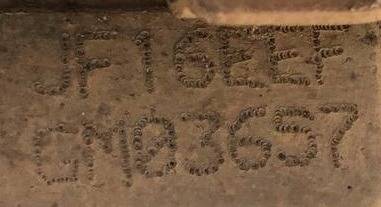 JF16EEF
GM103657